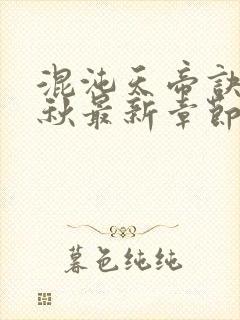 混沌天帝诀
秋最新章节
暮色纯纯